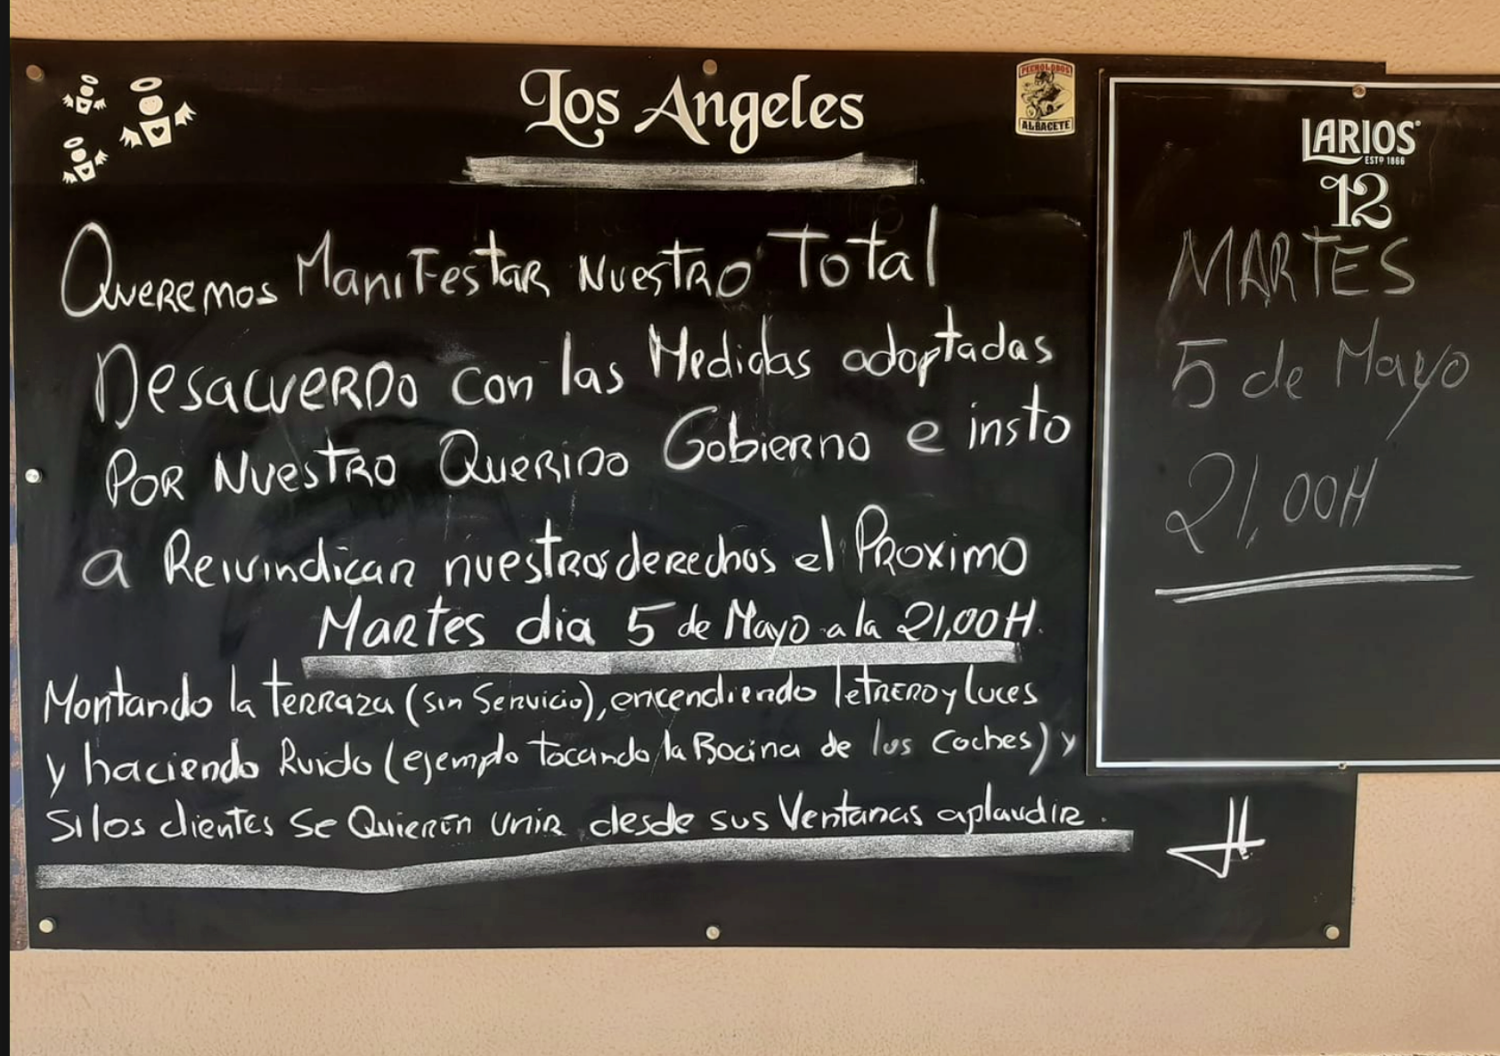 Los Angeles
TECNOLOBOS
ALBACETE
Queremos Manifestar Nuestro Total
Desacuerdo con las Medidas adoptadas
Por Nuestro Querido Gobierno e insto
a Reivindicar nuestros derechos el Proximo
Martes dia 5 de Mayo a la 21,00H.
Montando la terraza (sin Servicio), encendiendo letrero y luces
y haciendo Ruido (ejemplo tocando la Bocina de los Coches) y
Si los clientes Se Quieren unir desde sus Ventanas aplaudir.
LARIOS®
ESTD 1866
12
MARTES
5 de Mayo
21,00H